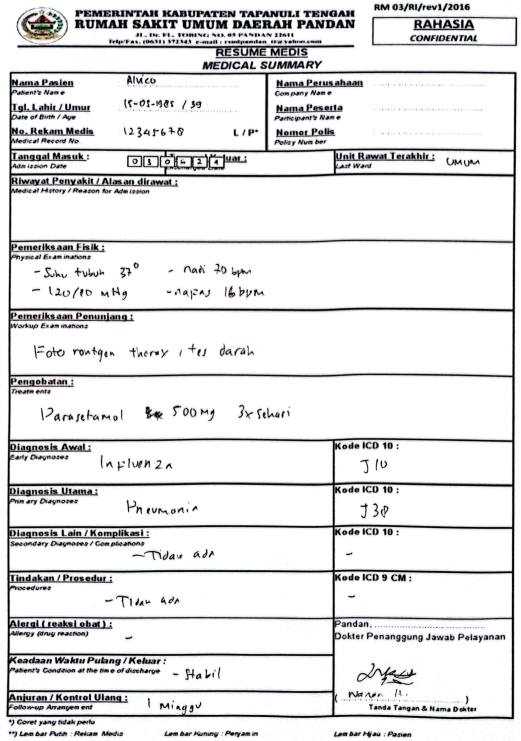 RM 03/RI/rev1/2016
PEMERINTAH KABUPATEN TAPANULI TENGAH
RUMAH SAKIT UMUM DAERAH PANDAN
JL. Dr. FL. TOBING NO. 05 PANDAN 22611
Telp/Fax. (0631) 372343 e-mail :
RAHASIA
CONFIDENTIAL
RESUME MEDIS
MEDICAL SUMMARY
Nama Pasien Alvico
Patient's Name
Nama Perusahaan
Company Name
Tgl. Lahir / Umur 15-05-1985 / 39
Date of Birth / Age
Nama Peserta
Participant's Name
No. Rekam Medis 12345678 L / P*
Medical Record No.
Nomor Polis
Policy Number
Tanggal Masuk : 030424 uar :
Admission Date
Unit Rawat Terakhir : UMUM
Last Ward
Riwayat Penyakit / Alasan dirawat :
Medical History / Reason for Admission
Pemeriksaan Fisik :
Physical Examinations
- Suhu tubuh 37° - nadi 70 bpm
- 120/80 mHg - napas 16 bpm
Pemeriksaan Penunjang :
Workup Examinations
Foto rontgen thorax, tes darah
Pengobatan :
Treatments
Parasetamol 500 mg 3x sehari
Diagnosis Awal :
Early Diagnoses
Influenza
Kode ICD 10 :
J10
Diagnosis Utama :
Primary Diagnoses
Pneumonia
Kode ICD 10 :
J38
Diagnosis Lain / Komplikasi :
Secondary Diagnoses / Complications
- Tidak ada
Kode ICD 10 :
-
Tindakan / Prosedur :
Procedures
- Tidak ada
Kode ICD 9 CM :
-
Alergi ( reaksi obat ) :
Allergy (drug reaction)
-
Pandan,
Dokter Penanggung Jawab Pelayanan
Keadaan Waktu Pulang / Keluar :
Patient's Condition at the time of discharge
- Stabil
Anjuran / Kontrol Ulang :
Follow-up Arrangement
1 Minggu
Tanda Tangan & Nama Dokter
*) Coret yang tidak perlu
**) Lembar Putih : Rekam Medis Lembar Kuning : Penjamin Lembar Hijau : Pasien